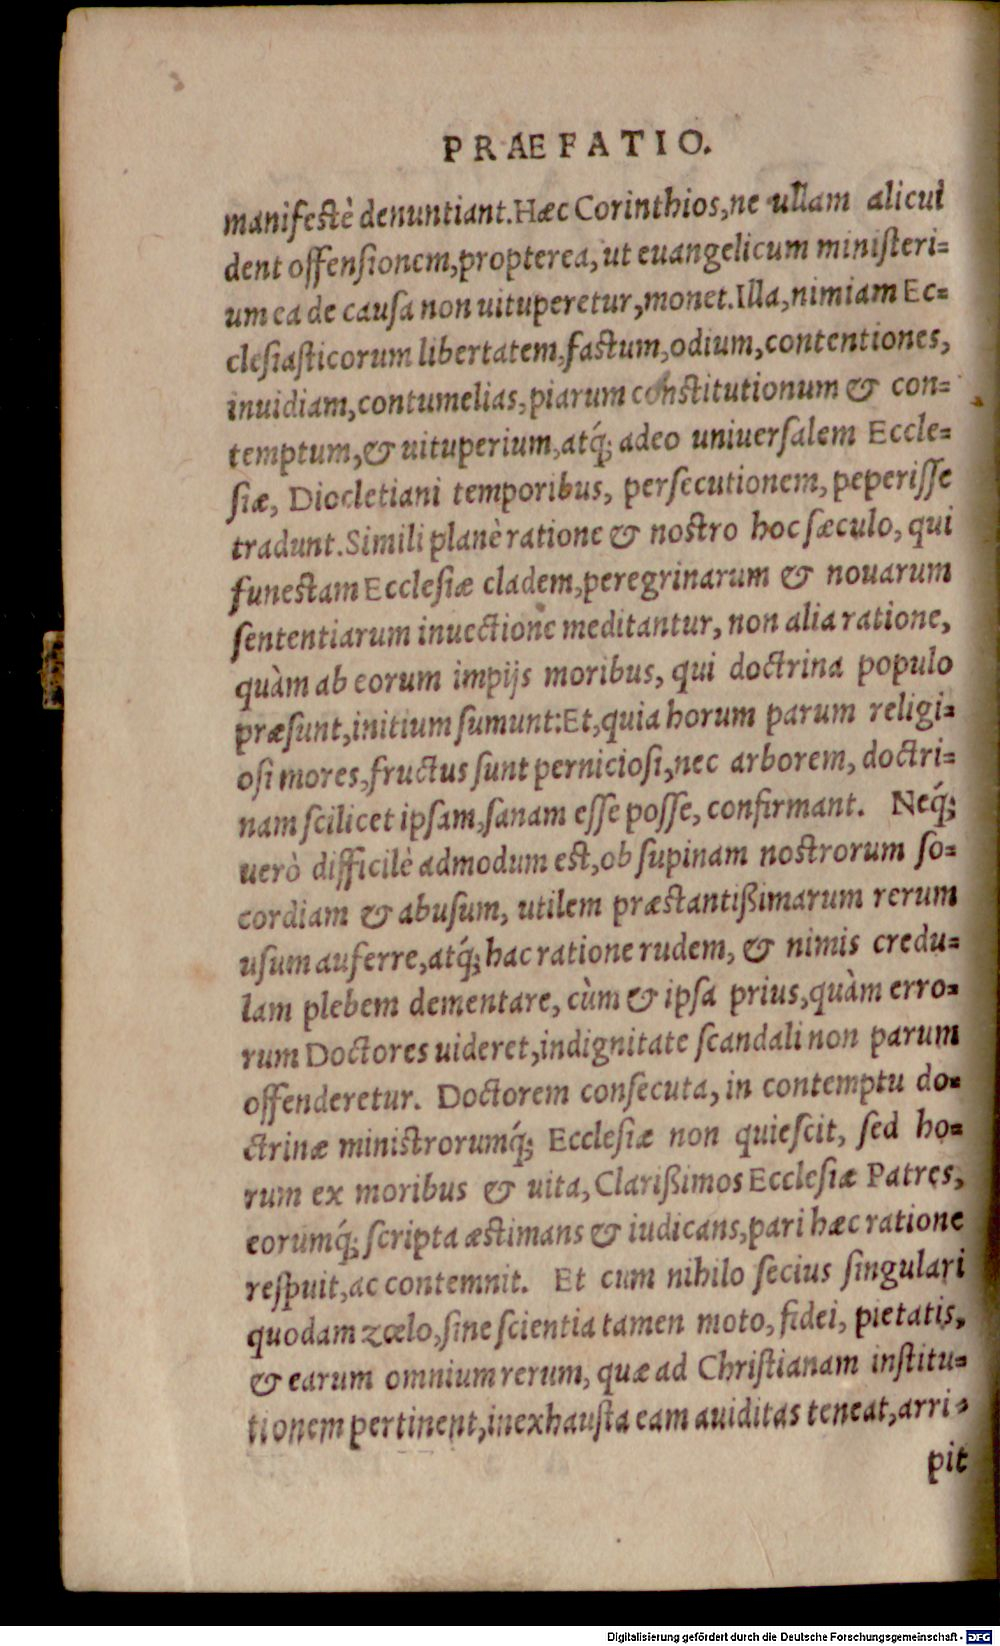 PRÆFATIO.
manifestè denuntiant. Hæc Corinthios, ne ullam alicui
dent offensionem, propterea, ut euangelicum ministeri=
um ea de causa non uituperetur, monet. Illa, nimiam Ec=
clesiasticorum libertatem, factum, odium, contentiones,
inuidiam, contumelias, piarum constitutionum & con=
temptum, & uituperium, atq́; adeo uniuersalem Eccle=
siæ, Diocletiani temporibus, persecutionem, peperisse
tradunt. Simili planè ratione & nostro hoc sæculo, qui
funestam Ecclesiæ cladem, peregrinarum & nouarum
sententiarum inuectione meditantur, non alia ratione,
quàm ab eorum impijs moribus, qui doctrina populo
præsunt, initium sumunt: Et, quia horum parum religi=
osi mores, fructus sunt perniciosi, nec arborem, doctri=
nam scilicet ipsam, sanam esse posse, confirmant. Neq́;
uerò difficilè admodum est, ob supinam nostrorum so=
cordiam & abusum, utilem præstantißimarum rerum
usum auferre, atq́; hac ratione rudem, & nimis credu=
lam plebem dementare, cùm & ipsa prius, quàm erro=
rum Doctores uideret, indignitate scandali non parum
offenderetur. Doctorem consecuta, in contemptu do=
ctrinæ ministrorumq́; Ecclesiæ non quiescit, sed ho=
rum ex moribus & uita, Clarißimos Ecclesiæ Patres,
eorumq́; scripta æstimans & iudicans, pari hæc ratione
respuit, ac contemnit. Et cum nihilo secius singulari
quodam zœlo, sine scientia tamen moto, fidei, pietatis,
& earum omnium rerum, quæ ad Christianam institu=
tionem pertinent, inexhausta eam auiditas teneat, arri=
pit
Digitalisierung gefördert durch die Deutsche Forschungsgemeinschaft - DFG